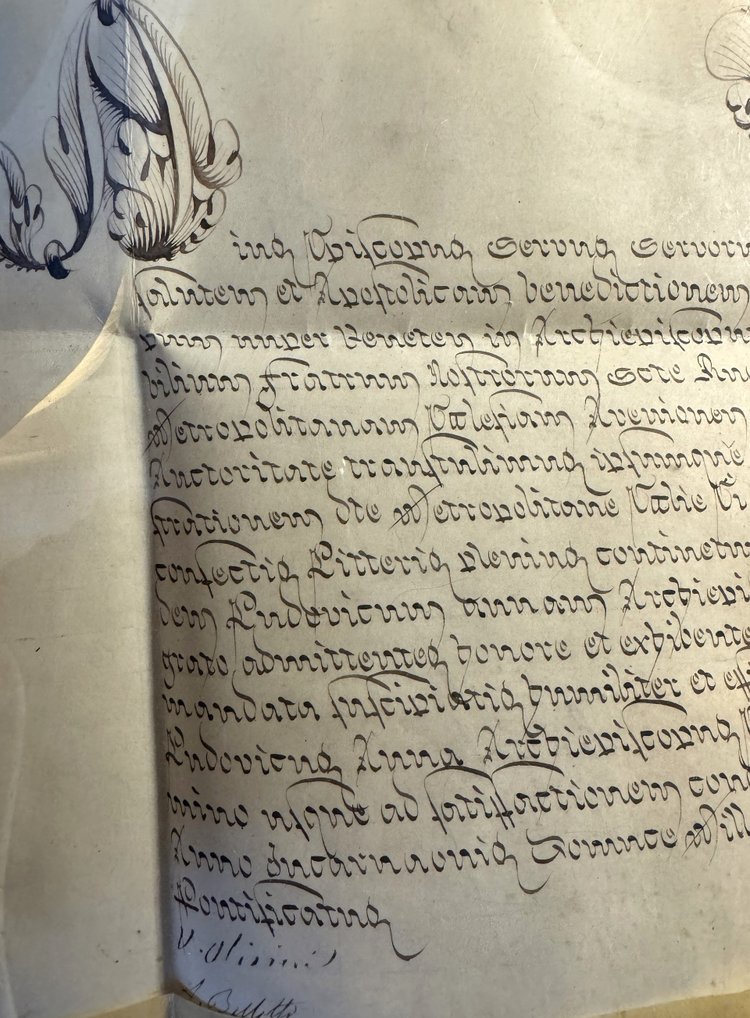 ius Episcopus Servus Servoru
salutem et Apostolicam benedictionem
rum nuper Veneten in Archiepiscopu
bilium fratrum Nostrorum Scte Rom
Metropolitanam Ecclesiam Avenionen
Auctoritate transtulimus ipsumque
strationem dte Metropolitane Ecclie
confectis Litteris plenius continetu
dem Ludovicum Annam Archiepi
grato admittentes honore et exhibente
mandata suscipiatis humiliter et effi
Ludovicus Anna Archiepiscopus
mino usque ad satisfactionem con
Anno Incarnaonis Domince Mill
Pontificatus